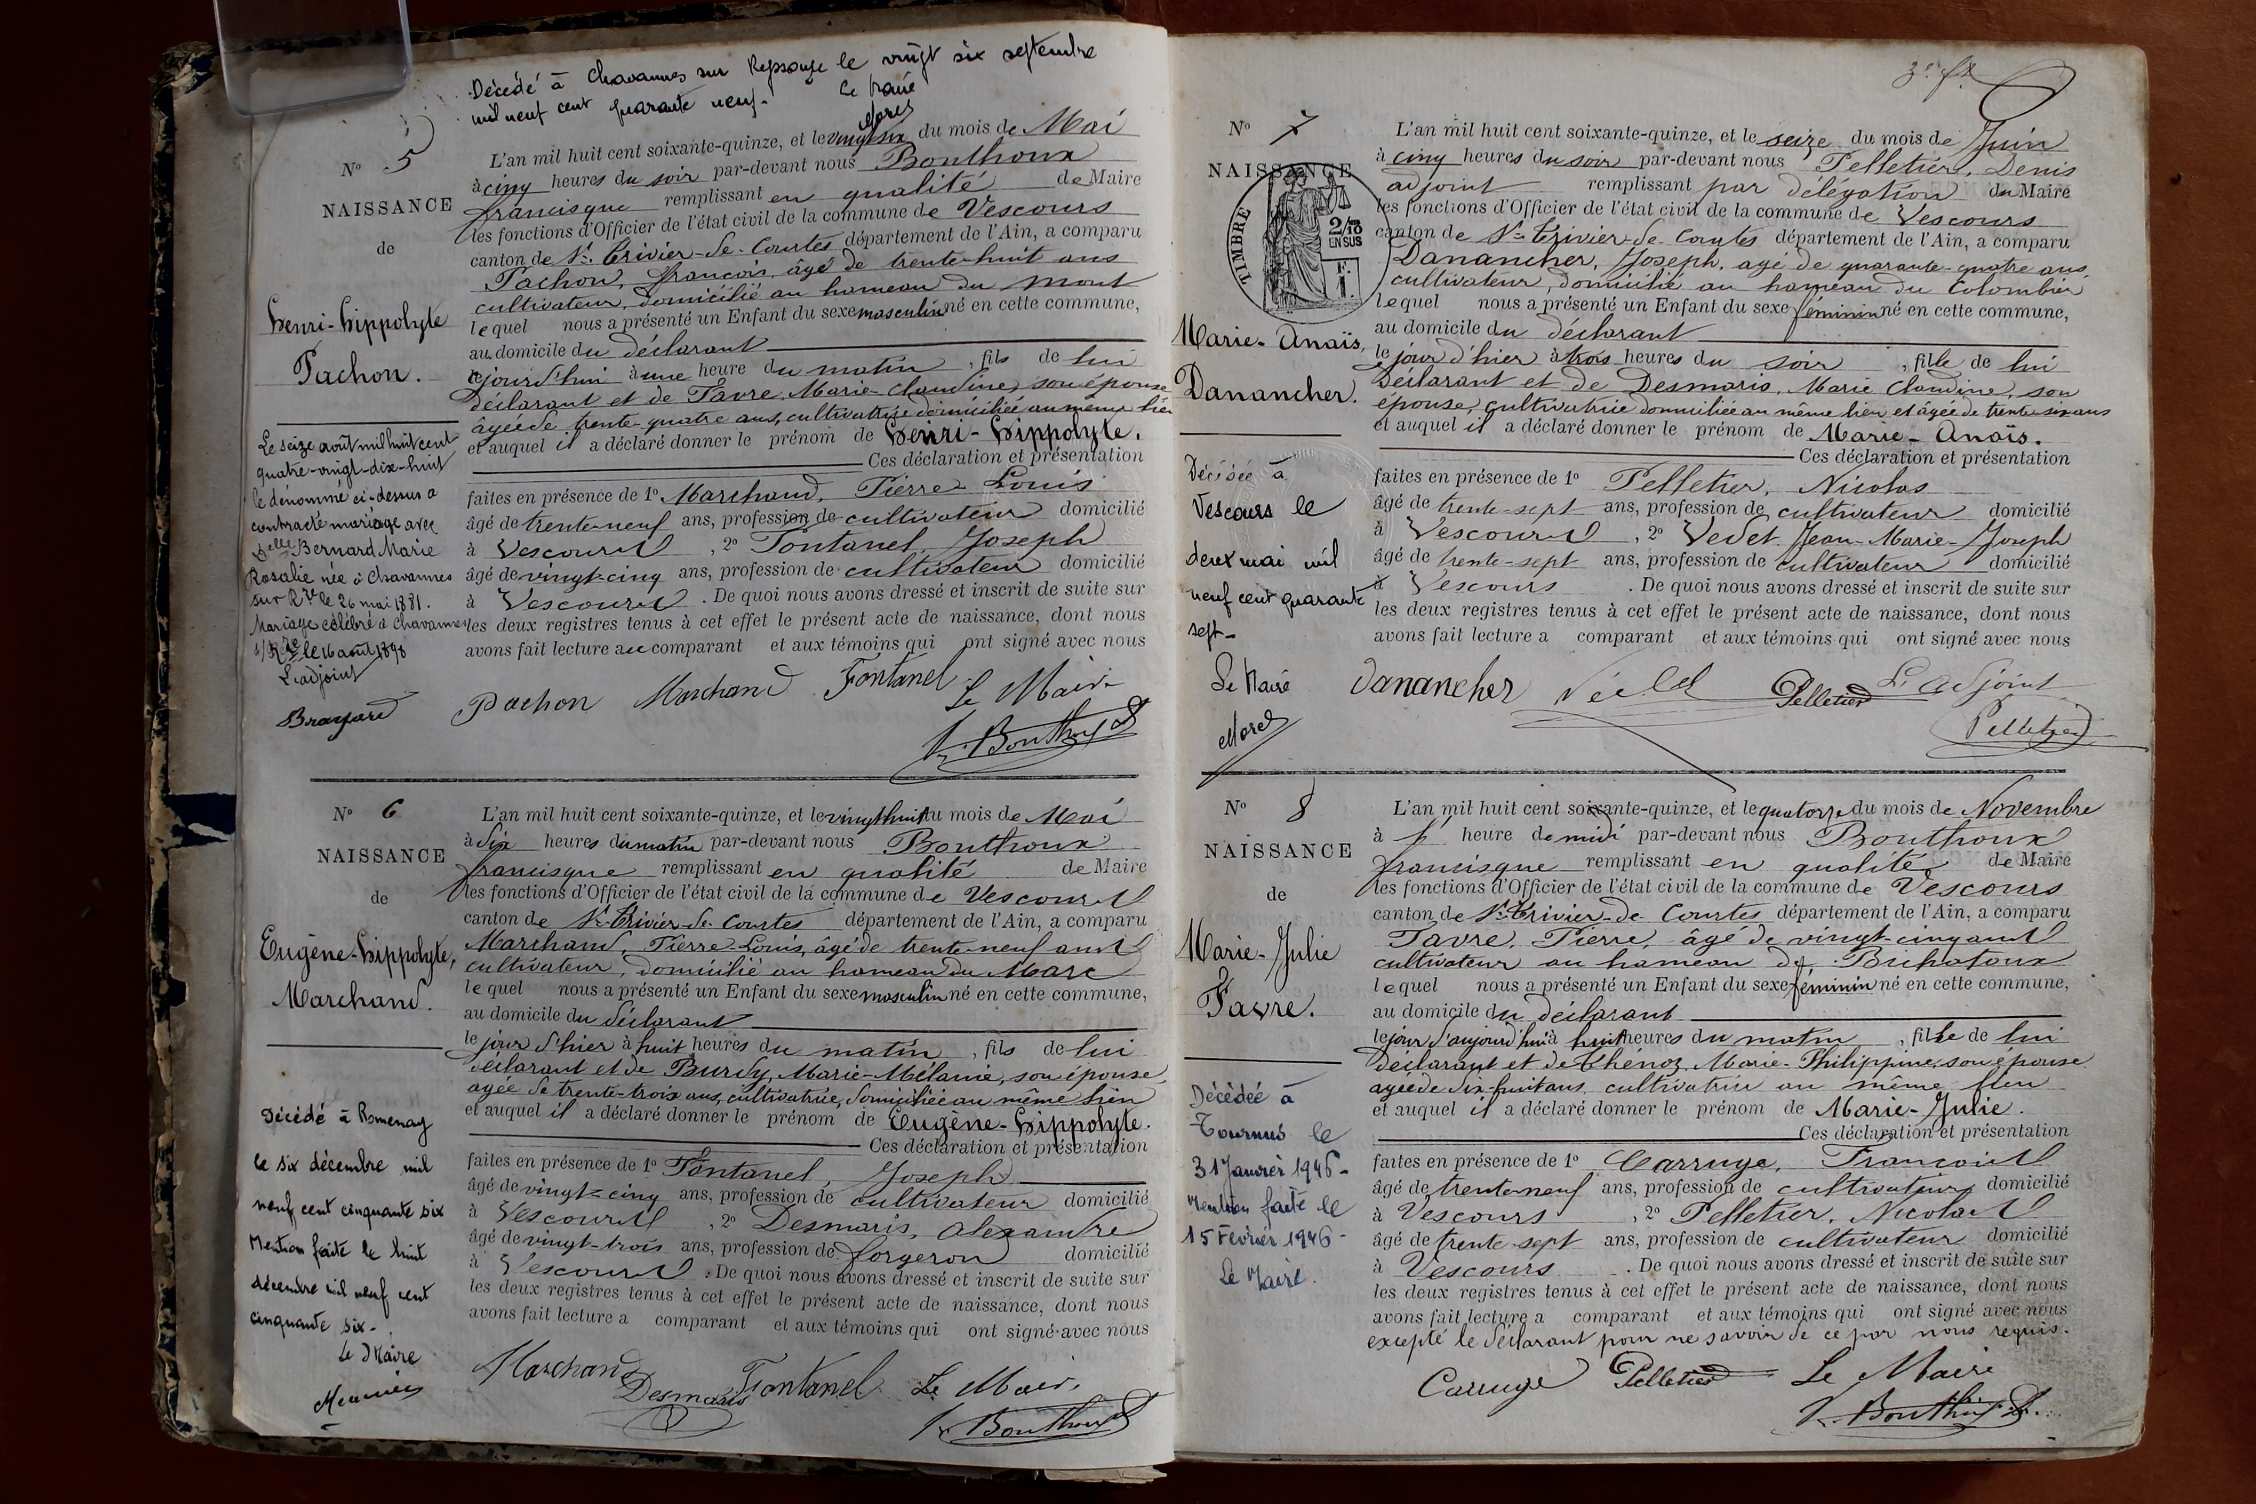 Décédé à Chavannes sur Reyssouze le vingt six septembre
mil neuf cent quarante neuf. Le Maire
Morel
N° 5
NAISSANCE
de
Henri-Hippolyte
Pachon.
Le seize août mil huit cent
quatre-vingt-dix-huit
le dénommé ci-dessus a
contracté mariage avec
Delle Bernard Marie
Rosalie née à Chavannes
sur Rze le 26 mai 1881.
Mariage célébré à Chavannes
s/Rze le 16 août 1898
L'adjoint
Brayard
L'an mil huit cent soixante-quinze, et le vingt six du mois de Mai
à cinq heures du soir par-devant nous Bouthoux
francisque remplissant en qualité de Maire
les fonctions d'Officier de l'état civil de la commune de Vescours
canton de St. Trivier-de-Courtes département de l'Ain, a comparu
Pachon, françois, âgé de trente-huit ans
cultivateur, domicilié au hameau du Mont
lequel nous a présenté un Enfant du sexe masculin né en cette commune,
au domicile du déclarant
cejourd'hui à une heure du matin, fils de lui
déclarant et de Favre, Marie-Claudine, son épouse
âgée de trente-quatre ans, cultivatrice domiciliée au même lieu
et auquel il a déclaré donner le prénom de Henri-Hippolyte.
Ces déclaration et présentation
faites en présence de 1° Marchand, Pierre Louis
âgé de trente-neuf ans, profession de cultivateur domicilié
à Vescours, 2° Fontanel, Joseph
âgé de vingt-cinq ans, profession de cultivateur domicilié
à Vescours. De quoi nous avons dressé et inscrit de suite sur
les deux registres tenus à cet effet le présent acte de naissance, dont nous
avons fait lecture au comparant et aux témoins qui ont signé avec nous
Pachon Marchand Fontanel Le Maire
Bouthoux
N° 6
NAISSANCE
de
Eugène-Hippolyte,
Marchand.
Décédé à Romenay
le six décembre mil
neuf cent cinquante six
Mention faite le huit
décembre mil neuf cent
cinquante six.
Le Maire
Meunier
L'an mil huit cent soixante-quinze, et le vingt huit du mois de Mai
à six heures du matin par-devant nous Bouthoux
francisque remplissant en qualité de Maire
les fonctions d'Officier de l'état civil de la commune de Vescours
canton de St. Trivier-de-Courtes département de l'Ain, a comparu
Marchand, Pierre-Louis, âgé de trente-neuf ans
cultivateur, domicilié au hameau du Marc
lequel nous a présenté un Enfant du sexe masculin né en cette commune,
au domicile du déclarant
le jour d'hier à huit heures du matin, fils de lui
déclarant et de Burdy, Marie-Mélanie, son épouse,
agée de trente-trois ans, cultivatrice, domiciliée au même lieu
et auquel il a déclaré donner le prénom de Eugène-Hippolyte.
Ces déclaration et présentation
faites en présence de 1° Fontanel, Joseph
âgé de vingt-cinq ans, profession de cultivateur domicilié
à Vescours, 2° Desmaris, Alexandre
âgé de vingt-trois ans, profession de forgeron domicilié
à Vescours. De quoi nous avons dressé et inscrit de suite sur
les deux registres tenus à cet effet le présent acte de naissance, dont nous
avons fait lecture a comparant et aux témoins qui ont signé avec nous
Marchand Desmaris Fontanel Le Maire
Bouthoux
N° 7
NAISSANCE
TIMBRE
2/10
EN SUS
Marie-Anaïs,
Danancher.
Décédée à
Vescours le
deux mai mil
neuf cent quarante
sept-
Le Maire
Morel
L'an mil huit cent soixante-quinze, et le seize du mois de Juin
à cinq heures du soir par-devant nous Pelletier, Denis
adjoint remplissant par délégation du Maire
les fonctions d'Officier de l'état civil de la commune de Vescours
canton de St. Trivier-de-Courtes département de l'Ain, a comparu
Danancher, Joseph, agé de quarante-quatre ans,
cultivateur, domicilié au hameau du Colombier
lequel nous a présenté un Enfant du sexe féminin né en cette commune,
au domicile du déclarant
le jour d'hier à trois heures du soir, fille de lui
déclarant et de Desmaris, Marie Claudine, son
épouse, cultivatrice domiciliée au même lieu et âgée de trente-six ans
et auquel il a déclaré donner le prénom de Marie-Anaïs.
Ces déclaration et présentation
faites en présence de 1° Pelletier, Nicolas
âgé de trente-sept ans, profession de cultivateur domicilié
à Vescours, 2° Vedet Jean-Marie-Joseph
âgé de trente-sept ans, profession de cultivateur domicilié
à Vescours. De quoi nous avons dressé et inscrit de suite sur
les deux registres tenus à cet effet le présent acte de naissance, dont nous
avons fait lecture a comparant et aux témoins qui ont signé avec nous
Danancher Pelletier L'adjoint
Pelletier
N° 8
NAISSANCE
de
Marie-Julie
Favre.
Décédée à
Tournus le
31 Janvier 1946-
Mention faite le
15 Février 1946-
Le Maire.
L'an mil huit cent soixante-quinze, et le quatorze du mois de Novembre
à heure de midi par-devant nous Bouthoux
francisque remplissant en qualité de Maire
les fonctions d'Officier de l'état civil de la commune de Vescours
canton de St. Trivier-de-Courtes département de l'Ain, a comparu
Favre, Pierre, âgé de vingt-cinq ans
cultivateur au hameau de
lequel nous a présenté un Enfant du sexe féminin né en cette commune,
au domicile du déclarant
le jour d'aujourd'hui à huit heures du matin, fille de lui
déclarant et de Thénoz, Marie-Philippine, son épouse
agée de dix-huit ans, cultivatrice au même lieu
et auquel il a déclaré donner le prénom de Marie-Julie.
Ces déclaration et présentation
faites en présence de 1° Carruge, François
âgé de trente-neuf ans, profession de cultivateur domicilié
à Vescours, 2° Pelletier, Nicolas
âgé de trente-sept ans, profession de cultivateur domicilié
à Vescours. De quoi nous avons dressé et inscrit de suite sur
les deux registres tenus à cet effet le présent acte de naissance, dont nous
avons fait lecture a comparant et aux témoins qui ont signé avec nous
excepté le déclarant pour ne savoir de ce par nous requis.
Carruge Pelletier Le Maire
Bouthoux